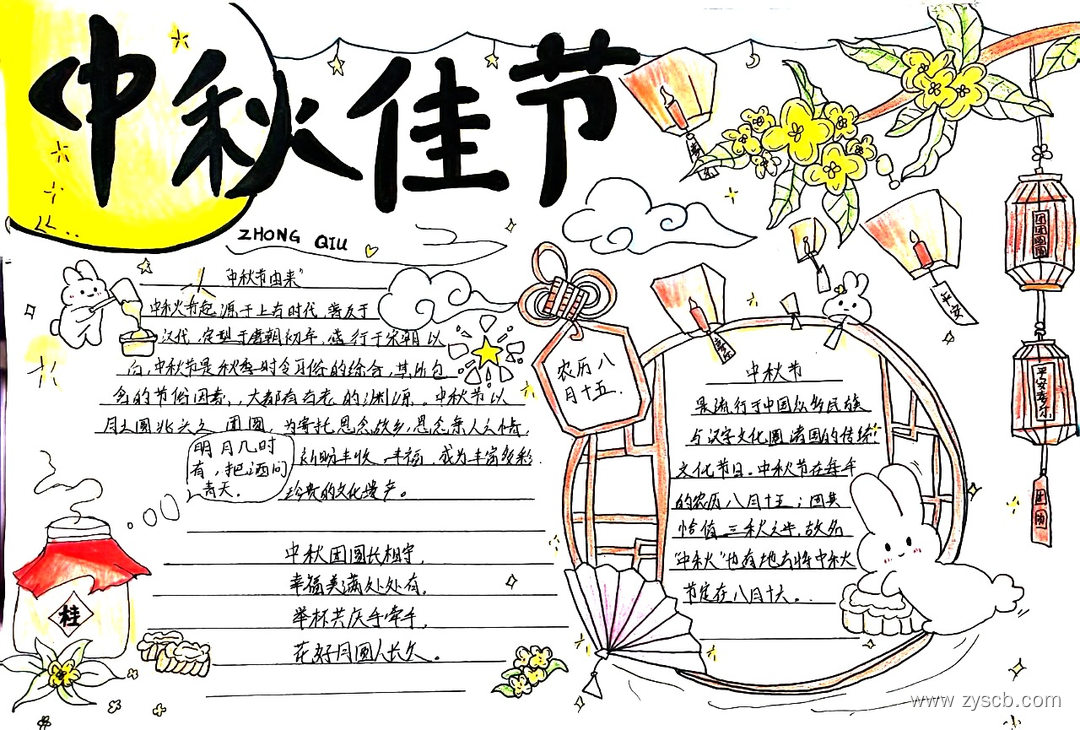 中秋佳节
ZHONG QIU
"中秋节由来"
中秋节起源于上古时代,普及于
汉代,定型于唐朝初年,盛行于宋朝以
后,中秋节是秋季时令习俗的综合,其所包
含的节俗因素,大都有古老的渊源。中秋节以
月之圆兆人之团圆,为寄托思念故乡,思念亲人之情,
祈盼丰收、幸福,成为丰富多彩
珍贵的文化遗产。
明月几时
有,把酒问
青天。
中秋团圆长相守,
幸福美满处处有,
举杯共庆手牵手,
花好月圆人长久。
桂
农历八
月十五.
中秋节
是流行于中国众多民族
与汉字文化圈诸国的传统
文化节日。中秋节在每年
的农历八月十五;因其
恰值三秋之半,故名
"中秋"也有地方将中秋
节定在八月十六。
平安
团团圆圆
平安喜乐
团圆
www.zyscb.com